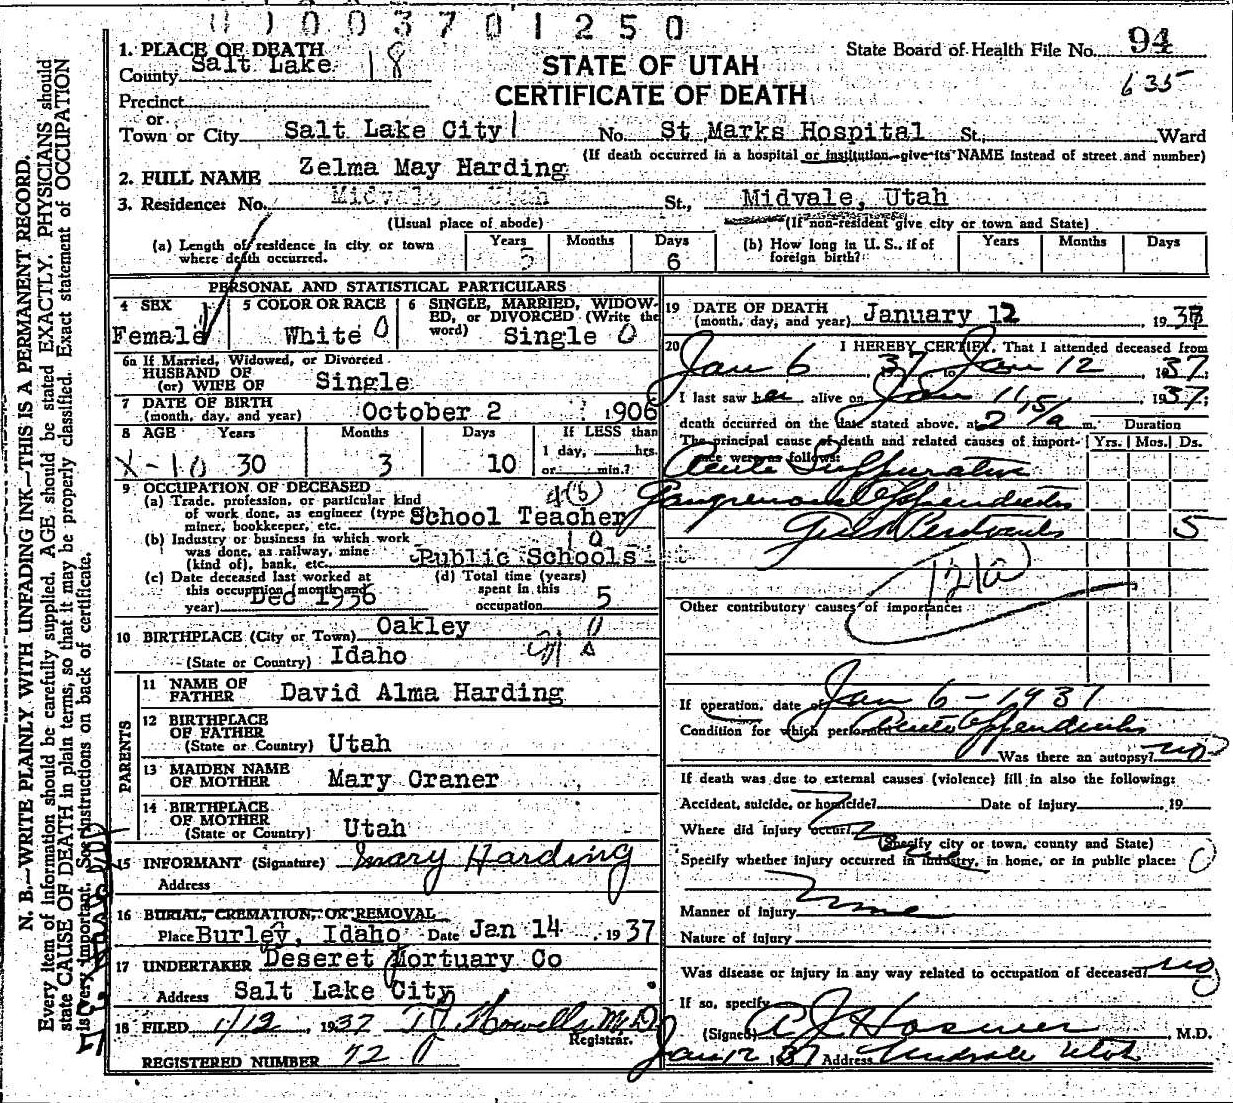 01003701250
1. PLACE OF DEATH
County Salt Lake 18
STATE OF UTAH
CERTIFICATE OF DEATH
State Board of Health File No. 94
635
Precinct
or
Town or City Salt Lake City No. St Marks Hospital St., Ward
(If death occurred in a hospital or institution, give its NAME instead of street and number)
2. FULL NAME Zelma May Harding
3. Residence: No. Midvale Utah St., Midvale, Utah
(Usual place of abode) (If non-resident give city or town and State)
(a) Length of residence in city or town where death occurred. Years 5 Months Days 6
(b) How long in U. S., if of foreign birth? Years Months Days
PERSONAL AND STATISTICAL PARTICULARS
4 SEX Female
5 COLOR OR RACE White 0
6 SINGLE, MARRIED, WIDOWED, or DIVORCED (Write the word) Single 0
6a If Married, Widowed, or Divorced
HUSBAND OF
(or) WIFE OF Single
7 DATE OF BIRTH
(month, day, and year) October 2 1906
8 AGE Years Months Days If LESS than
1 day, hrs.
X-10 30 3 10 or min.?
9 OCCUPATION OF DECEASED
(a) Trade, profession, or particular kind
of work done, as engineer (type
miner, bookkeeper, etc. School Teacher
(b) Industry or business in which work
was done, as railway, mine
(kind of), bank, etc. Public Schools
(c) Date deceased last worked at
this occupation (month and
year) Dec 1936
(d) Total time (years)
spent in this
occupation 5
10 BIRTHPLACE (City or Town) Oakley
(State or Country) Idaho
PARENTS
11 NAME OF
FATHER David Alma Harding
12 BIRTHPLACE
OF FATHER
(State or Country) Utah
13 MAIDEN NAME
OF MOTHER Mary Craner
14 BIRTHPLACE
OF MOTHER
(State or Country) Utah
15 INFORMANT (Signature) Mary Harding
Address
16 BURIAL, CREMATION, OR REMOVAL
Place Burley, Idaho Date Jan 14, 1937
17 UNDERTAKER Deseret Mortuary Co
Address Salt Lake City
18 FILED 1/12, 1937 T J Howells M.D.
Registrar.
REGISTERED NUMBER 72
19 DATE OF DEATH
(month, day, and year) January 12, 1937
20 I HEREBY CERTIFY, That I attended deceased from
Jan 6, 37 to Jan 12, 1937;
I last saw her alive on Jan 11, 1937;
death occurred on the date stated above, at m. Duration
The principal cause of death and related causes of importance were as follows: Yrs. Mos. Ds.
Acute Suppurative
Gangrenous Appendicitis
5
121a
Other contributory causes of importance:
If operation, date of Jan 6-1937
Condition for which performed Acute Appendicitis
Was there an autopsy? no
If death was due to external causes (violence) fill in also the following:
Accident, suicide, or homicide? Date of injury 19
Where did injury occur?
(Specify city or town, county and State)
Specify whether injury occurred in industry, in home, or in public place:
Manner of injury
Nature of injury
Was disease or injury in any way related to occupation of deceased? no
If so, specify
(Signed) A J Hosmer, M.D.
Jan 12 1937 Address Midvale Utah
N. B.—WRITE PLAINLY WITH UNFADING INK—THIS IS A PERMANENT RECORD.
Every item of information should be carefully supplied. AGE should be stated EXACTLY. PHYSICIANS should
state CAUSE OF DEATH in plain terms, so that it may be properly classified. Exact statement of OCCUPATION
is very important. See instructions on back of certificate.